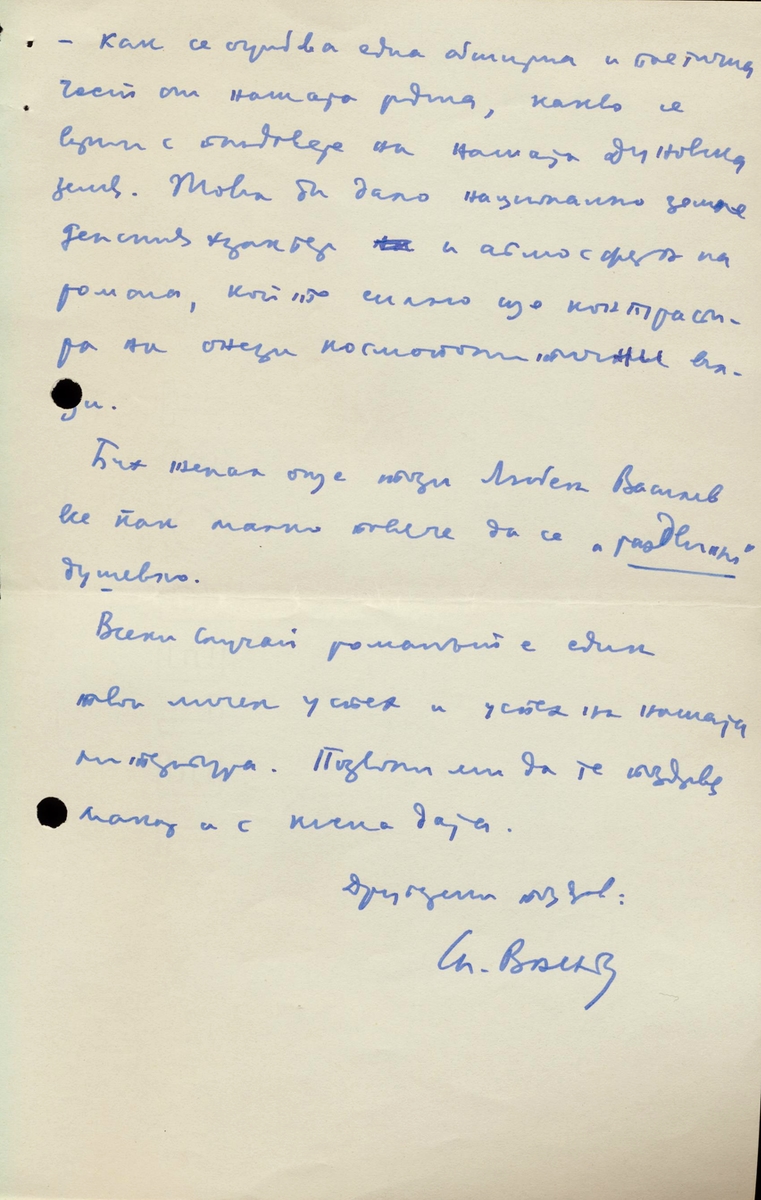 – как се ограбва една обширна и поетична
част от нашата родина, какво се
върши с плодовете на нашата духовна
земя. Това би дало национално земле
делския характер и атмосфера на
романа, който силно ще контрасти-
ра на онези космополитични вла-
ги.
Бих желал още този Любен Василев
все пак малко повече да се „раздвижи"
душевно.
Всеки случай романът е един
твой личен успех и успех на нашата
литература. Позволи ми да те поздравя
макар и с кисна дата.
Другарски поздрав:
Сп.